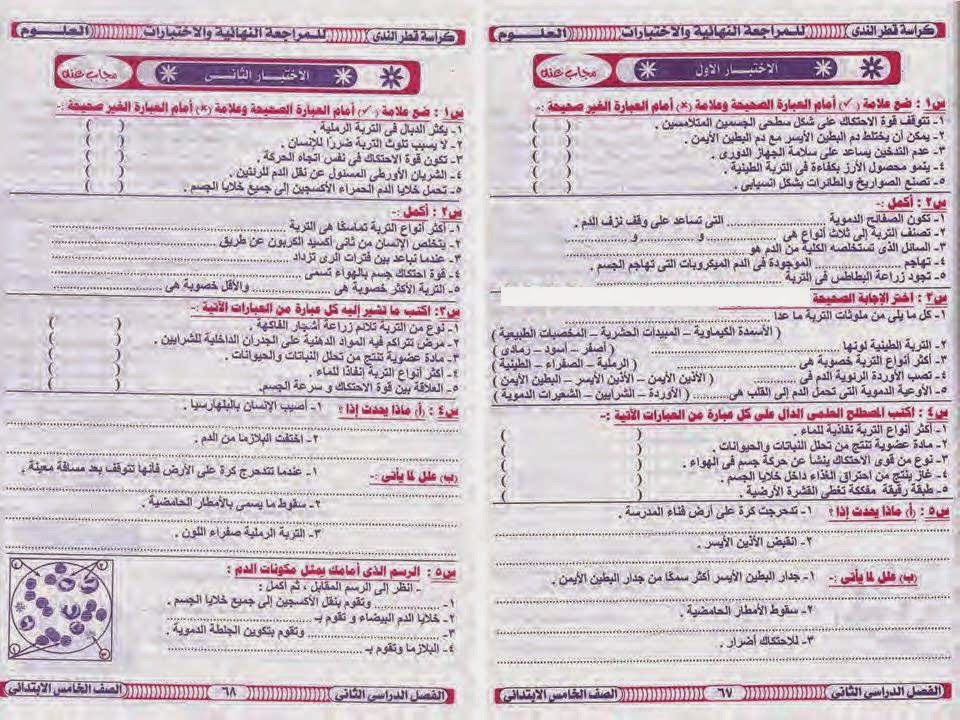 كراسة قطر الندى للمراجعة النهائية والاختبارات العلوم
الاختبار الأول مجاب عنه
س١ : ضع علامة (✓) أمام العبارة الصحيحة وعلامة (×) أمام العبارة الغير صحيحة :-
١- تتوقف قوة الاحتكاك على شكل سطحى الجسمين المتلامسين . ( )
٢- يمكن أن يختلط دم البطين الأيسر مع دم البطين الأيمن . ( )
٣- عدم التدخين يساعد على سلامة الجهاز الدورى . ( )
٤- ينمو محصول الأرز بكفاءة فى التربة الطينية . ( )
٥- تصنع الصواريخ والطائرات بشكل انسيابى . ( )
س٢ : أكمل :-
١- تكون الصفائح الدموية ........ التى تساعد على وقف نزف الدم .
٢- تصنف التربة إلى ثلاث أنواع هى ........ و ........ و ........
٣- السائل الذى تستخلصه الكلية من الدم هو ........
٤- تهاجم ........ الموجودة فى الدم الميكروبات التى تهاجم الجسم .
٥- تجود زراعة البطاطس فى التربة ........
س٣ : اختر الإجابة الصحيحة
١- كل ما يلى من ملوثات التربة ما عدا ........
( الأسمدة الكيماوية – المبيدات الحشرية – المخصبات الطبيعية )
٢- التربة الطينية لونها ........ ( أصفر – أسود – رمادى )
٣- أكثر أنواع التربة خصوبة هى ........ ( الرملية – الصفراء – الطينية )
٤- تصب الأوردة الرئوية الدم فى ........ ( الأذين الأيمن – الأذين الأيسر – البطين الأيمن )
٥- الأوعية الدموية التى تحمل الدم إلى القلب هى ........ ( الأوردة – الشرايين – الشعيرات الدموية )
س٤ : اكتب المصطلح العلمى الدال على كل عبارة من العبارات الآتية :-
١- أكثر أنواع التربة نفاذية للماء . ( )
٢- مادة عضوية تنتج من تحلل النباتات والحيوانات . ( )
٣- نوع من قوى الاحتكاك ينشأ عن حركة جسم فى الهواء . ( )
٤- غاز ينتج من احتراق الغذاء داخل خلايا الجسم . ( )
٥- طبقة رقيقة مفككة تغطى القشرة الأرضية . ( )
س٥ : (أ) ماذا يحدث إذا ؟ ١- تدحرجت كرة على أرض فناء المدرسة .
٢- انقبض الأذين الأيسر .
(ب) علل لما يأتى :- ١- جدار البطين الأيسر أكثر سمكًا من جدار البطين الأيمن .
٢- سقوط الأمطار الحامضية .
٣- للاحتكاك أضرار .
الفصل الدراسى الثانى ٦٧ الصف الخامس الابتدائى
كراسة قطر الندى للمراجعة النهائية والاختبارات العلوم
الاختبار الثانى مجاب عنه
س١ : ضع علامة (✓) أمام العبارة الصحيحة وعلامة (×) أمام العبارة الغير صحيحة :-
١- يكثر الدبال فى التربة الرملية . ( )
٢- لا يسبب تلوث التربة ضررًا للإنسان . ( )
٣- تكون قوة الاحتكاك فى نفس اتجاه الحركة . ( )
٤- الشريان الأورطى المسئول عن نقل الدم للرئتين . ( )
٥- تحمل خلايا الدم الحمراء الأكسجين إلى جميع خلايا الجسم . ( )
س٢ : أكمل :-
١- أكثر أنواع التربة تماسكًا هى التربة ........
٢- يتخلص الإنسان من ثانى أكسيد الكربون عن طريق ........
٣- عندما نباعد بين فترات الرى تزداد ........
٤- قوة احتكاك جسم بالهواء تسمى ........
٥- التربة الأكثر خصوبة هى ........ والأقل خصوبة هى ........
س٣: اكتب ما تشير إليه كل عبارة من العبارات الآتية :-
١- نوع من التربة تلائم زراعة أشجار الفاكهة . ( )
٢- مرض تتراكم فيه المواد الدهنية على الجدران الداخلية للشرايين . ( )
٣- مادة عضوية تنتج من تحلل النباتات والحيوانات . ( )
٤- أكثر أنواع التربة إنفاذا للماء . ( )
٥- العلاقة بين قوة الاحتكاك و سرعة الجسم. ( )
س٤ : (أ) ماذا يحدث إذا ؟ ١- أصيب الإنسان بالبلهارسيا .
٢- اختفت البلازما من الدم .
(ب) علل لما يأتى :- ١- عندما تتدحرج كرة على الأرض فأنها تتوقف بعد مسافة معينة .
٢- سقوط ما يسمى بالأمطار الحامضية .
٣- التربة الرملية صفراء اللون .
س٥ : الرسم الذى أمامك يمثل مكونات الدم :
- انظر إلى الرسم المقابل ، ثم أكمل :
١- ........ وتقوم بنقل الأكسجين إلى جميع خلايا الجسم .
٢- خلايا الدم البيضاء و تقوم بـ ........
٣- ........ وتقوم بتكوين الجلطة الدموية .
٤- البلازما وتقوم بـ ........
الفصل الدراسى الثانى ٦٨ الصف الخامس الابتدائى